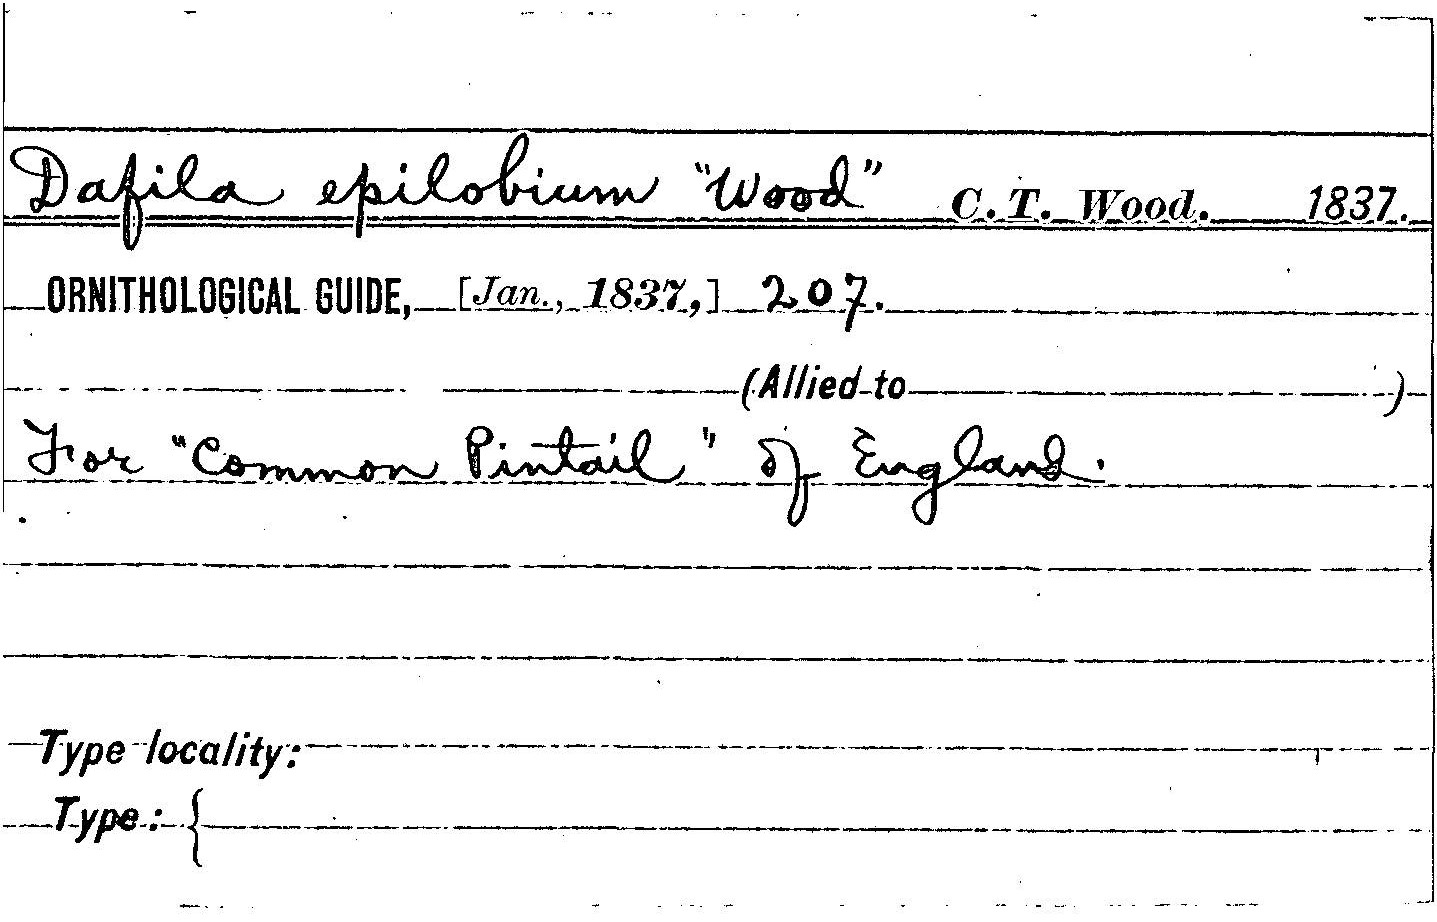 Dafila epilobium "Wood" C. T. Wood. 1837.
ORNITHOLOGICAL GUIDE, [Jan., 1837,] 207.
(Allied to )
For "Common Pintail" of England.
Type locality:
Type: {